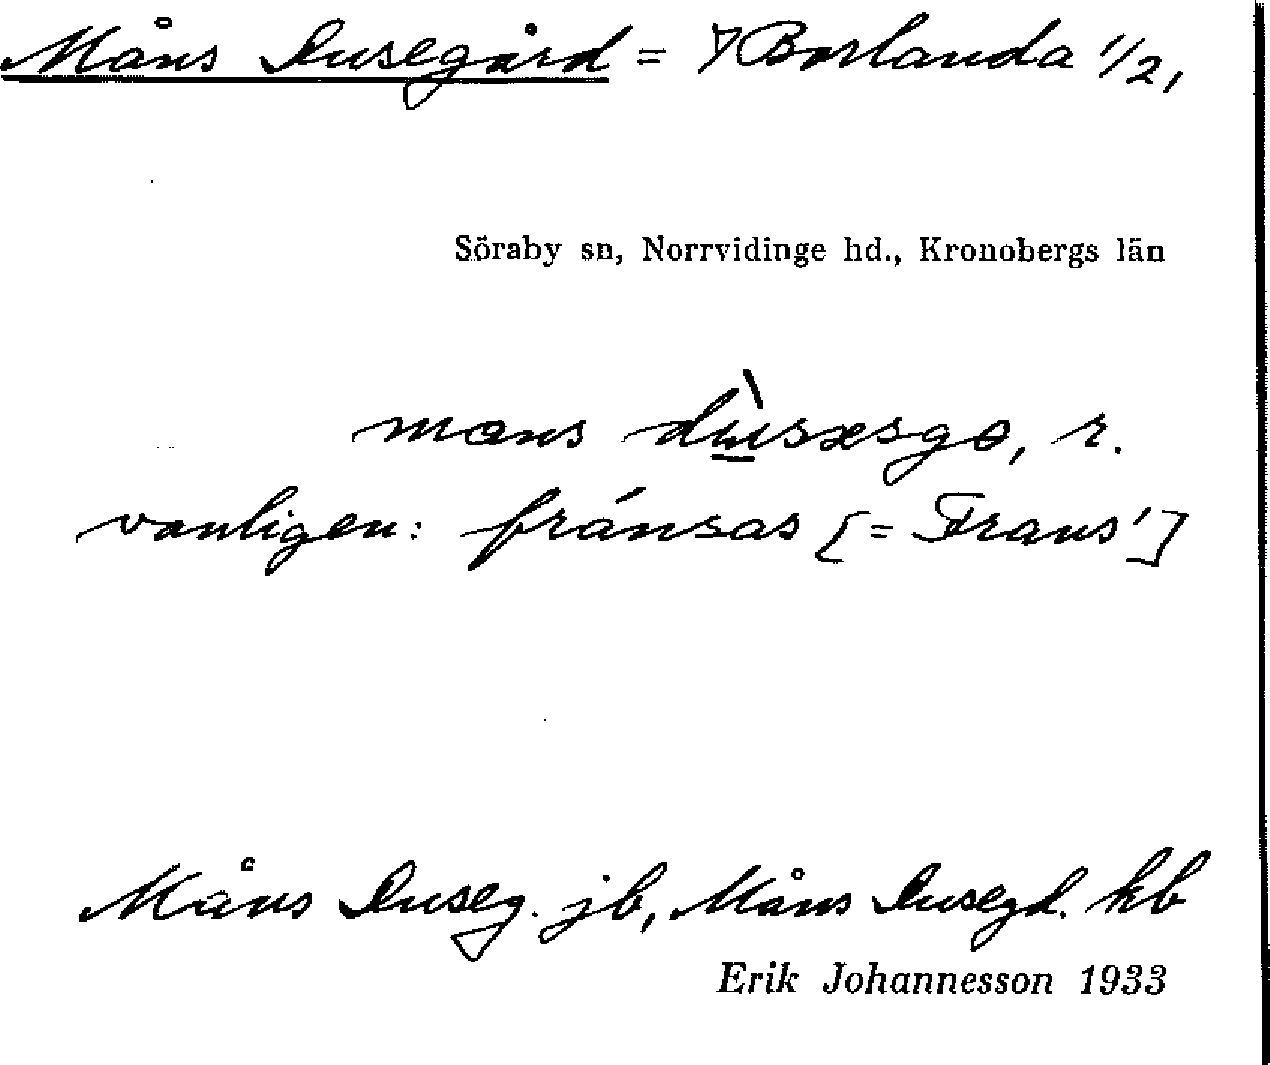 Måns Dusegård = Borlanda 1/2,
Söraby sn, Norrvidinge hd., Kronobergs län
mans dùsæsgo, r.
vanligen: fránsas [= Frans']
Måns Duseg. jb, Måns Dusegd. kb
Erik Johannesson 1933